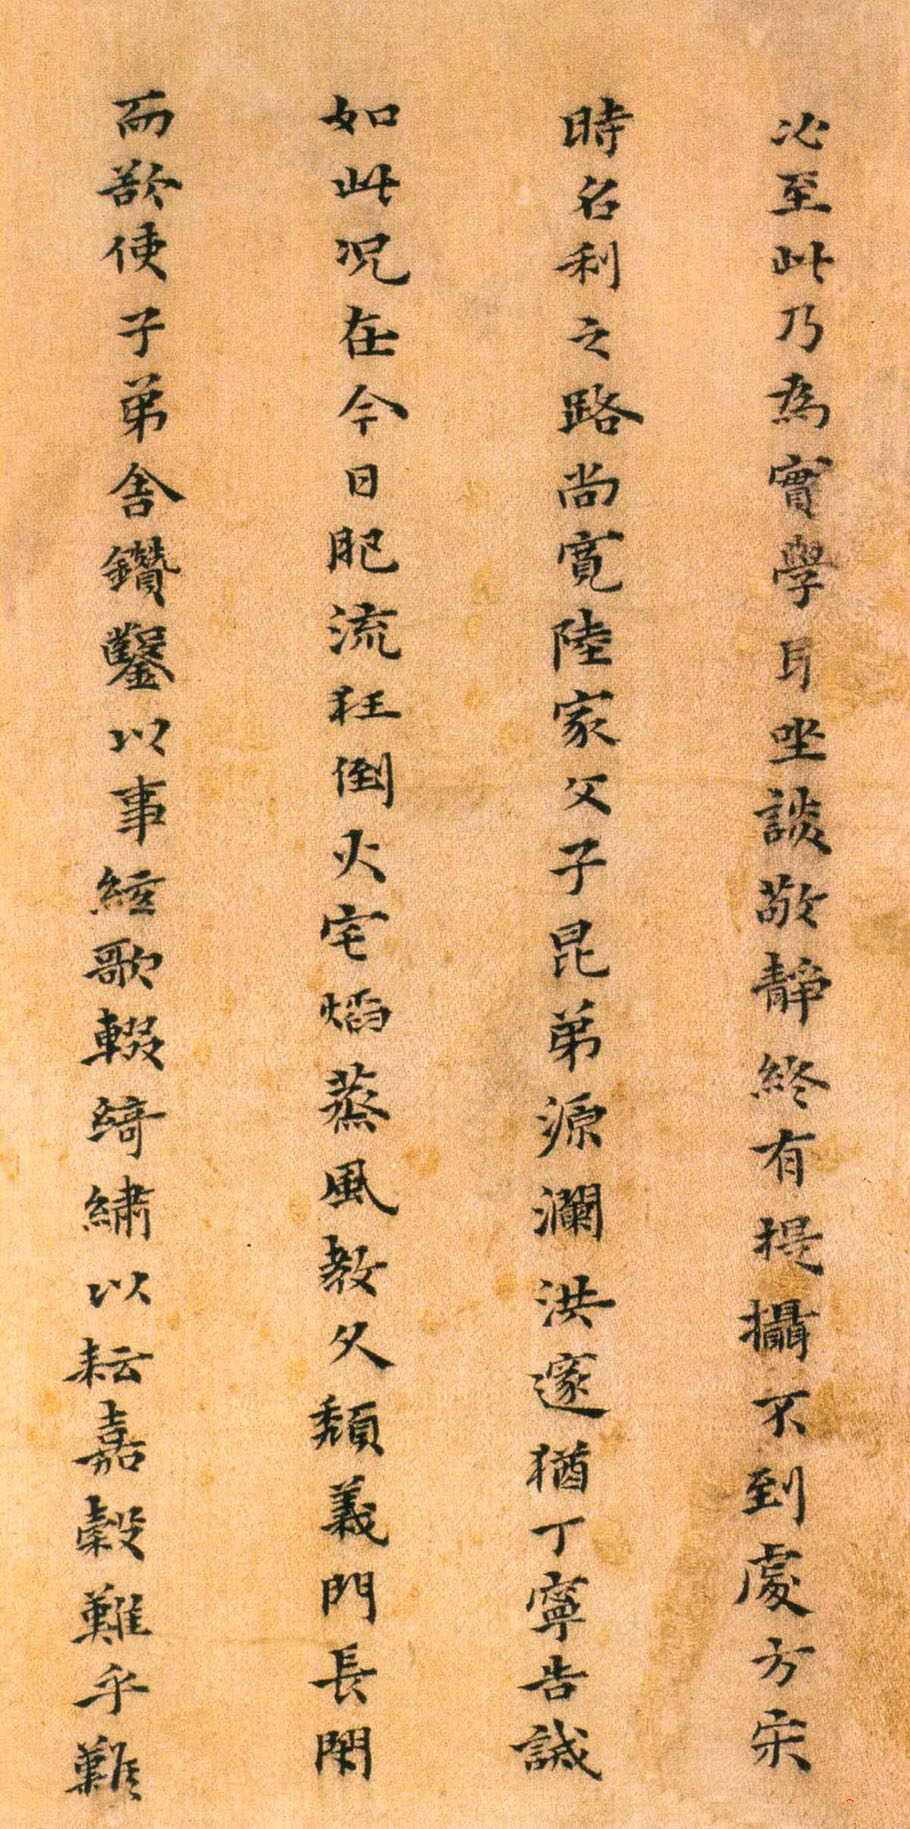 必至此乃為實學耳坐談敬靜終有提攝不到處方宋
時名利之路尚寬陸家父子昆弟源瀾洪邃猶丁寧告誡
如此況在今日肥流狂倒火宅熖蒸風教久頹義門長閑
而欲使子弟舍鑽鑿以事絃歌輟綺繡以耘嘉穀難乎難